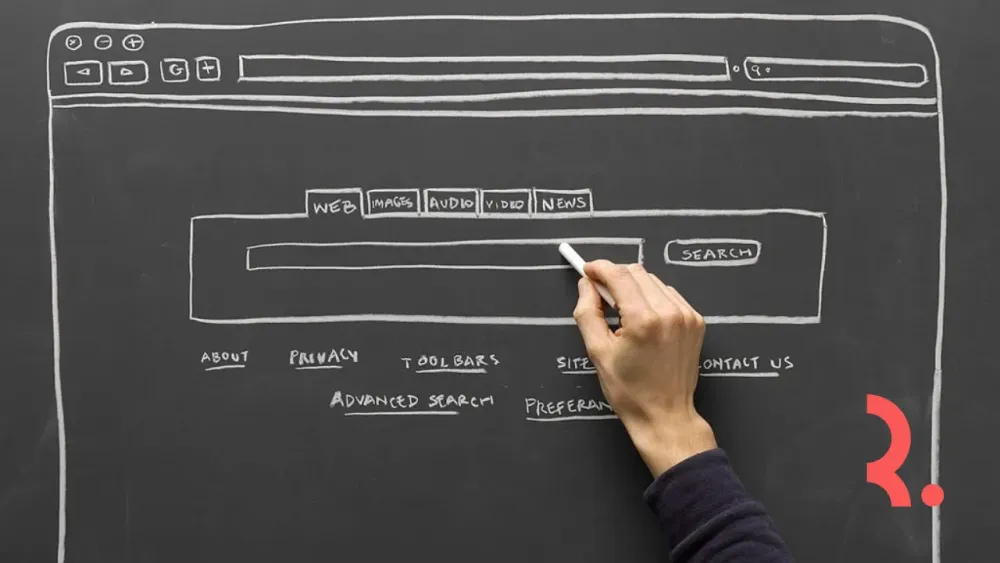 WEB IMAGES AUDIO VIDEO NEWS
SEARCH
ABOUT PRIVACY TOOLBARS CONTACT US
ADVANCED SEARCH